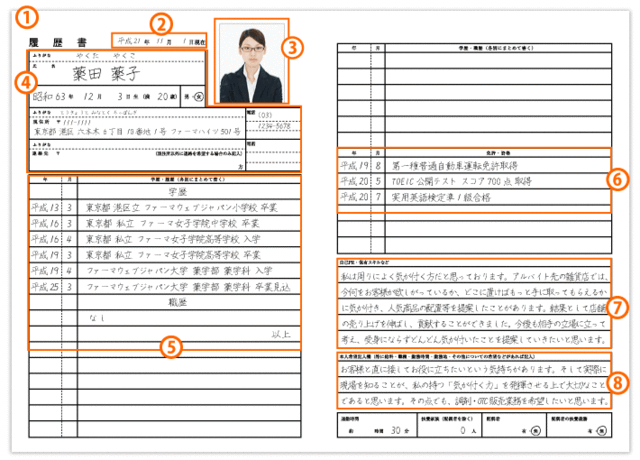 ① 
②
③
履 歴 書
平成21年 11月 1日現在
④
ふりがな やくた やくこ
氏 名
薬田 薬子
昭和63年 12月 3日生 (満 20歳) 男・女
ふりがな
現住所 〒111-1111
東京都 港区 六本木6丁目10番地1号 ファーマハイツ501号
電話 (03)
1234-5678
ふりがな
連絡先 〒 (現住所以外に連絡を希望する場合のみ記入)
方
電話
年 月 学歴・職歴(各別にまとめて書く)
学歴
平成13 3 東京都 港区立 ファーマウェブジャパン小学校 卒業
平成16 3 東京都 私立 ファーマ女子学院中学校 卒業
平成16 4 東京都 私立 ファーマ女子学院高等学校 入学
平成19 3 東京都 私立 ファーマ女子学院高等学校 卒業
平成19 4 ファーマウェブジャパン大学 薬学部 薬学科 入学
平成25 3 ファーマウェブジャパン大学 薬学部 薬学科 卒業見込
職歴
なし
以上
⑤
年 月 学歴・職歴(各別にまとめて書く)
年 月 免許・資格
平成19 8 第一種普通自動車運転免許取得
平成20 5 TOEIC公開テスト スコア700点 取得
平成20 7 実用英語検定準1級合格
⑥
自己PR・保有スキルなど
私は周りによく気が付く方だと思っております。アルバイト先の雑貨店では、
今何をお客様が欲しがっているか、どこに置けばもっと手に取ってもらえるか
に気が付き、人気商品の配置等を提案したことがあります。結果として店舗
の売り上げを伸ばし、貢献することができました。今後も相手の立場に立って
考え、受身にならずどんどん気が付いたことを提案していきたいと思います。
⑦
本人希望記入欄(特に給料・職種・勤務時間・勤務地・その他についての希望などがあれば記入)
お客様と直に接してお役に立ちたいという気持ちがあります。そして実際に
現場を知ることが、私の持つ「気が付く力」を発揮させる上で大切なこと
であると思います。その点でも、調剤・OTC販売業務を希望したいと思います。
⑧
通勤時間
約 時間 30分
扶養家族(配偶者を除く)
0 人
配偶者
有・無
配偶者の扶養義務
有・無